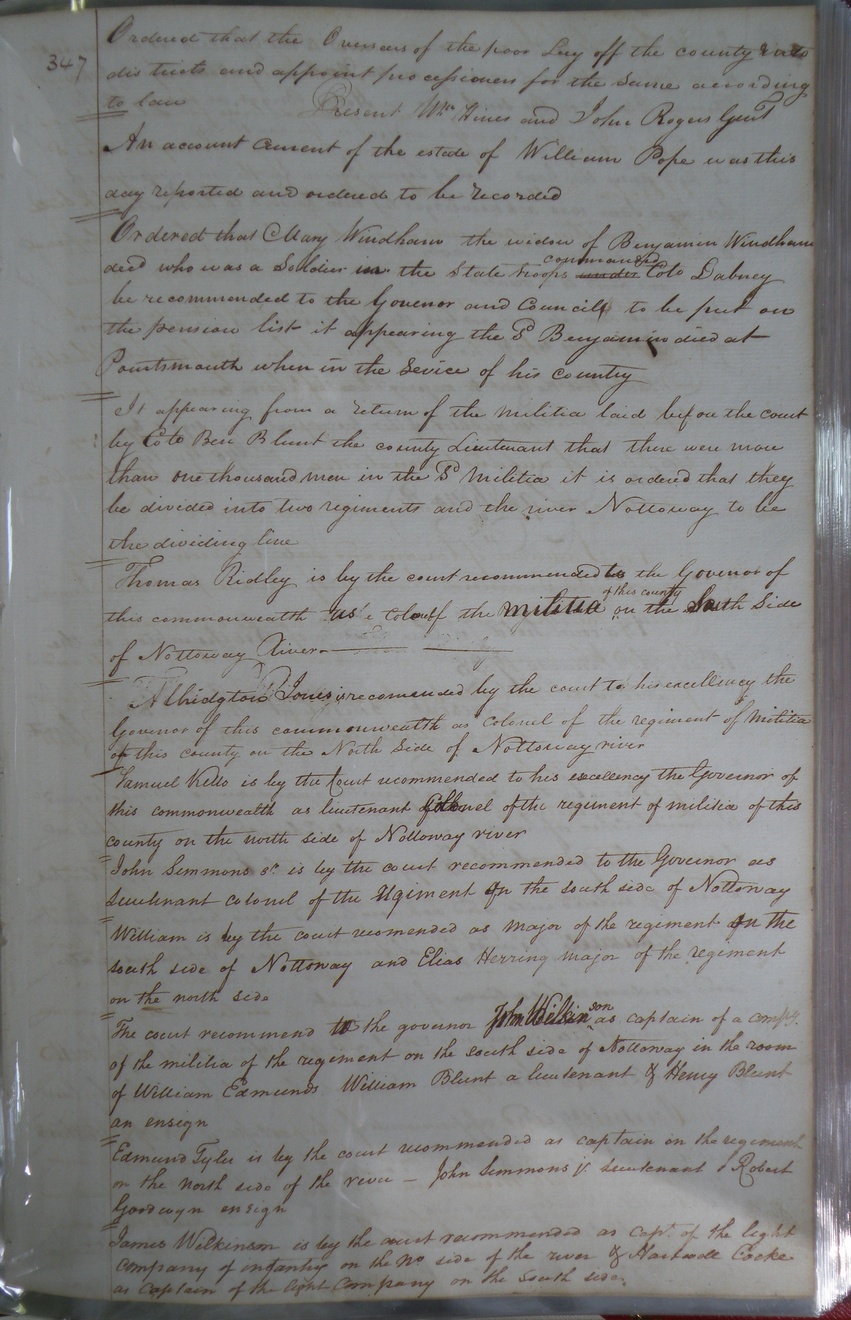 347
Ordered that the Overseers of the poor Lay off the county into
districts and appoint processioners for the same according
to law Present Wm Hines and John Rogers Gent
An account current of the estate of William Pope was this
day reported and ordered to be recorded
Ordered that Mary Windham the widow of Benjamin Windham
commanded
decd who was a Soldier in the State troops under Colo Dabney
be recommended to the Govenor and Council to be put on
the pension list it appearing the Sd Benjamin died at
Pourtsmouth when in the Sevice of his country
It appearing from a return of the militia laid before the court
by Colo Ben Blunt the county Lieutenant that there were more
than one thousand men in the Sd Militia it is ordered that they
be divided into two regiments and the river Nottoway to be
the dividing line
Thomas Ridley is by the court recommended to the Govenor of
of this county
this commonwealth as Colo of the militia on the South Side
of Nottoway River
Albridgton Jones is recomended by the court to his excellency the
Govenor of this commonwealth as Colonel of the regiment of Militia
of this county on the North Side of Nottoway river
Samuel Kello is by the Court recommended to his excellency the Governor of
this commonwealth as lieutenant Colonel of the regiment of militia of this
county on the north side of Nottoway river
John Simmons sr is by the court recommended to the Governor as
Lieutenant colonel of the regiment on the south side of Nottoway
William is by the court recomended as major of the regiment on the
south side of Nottoway and Elias Herring major of the regiment
on the north side
The court recommend to the governor John Wilkinson as captain of a compy.
of the militia of the regiment on the south side of Nottoway in the room
of William Edmunds William Blunt a lieutenant & Henry Blunt
an ensign
Edmund Tyler is by the court recommended as captain on the regiment
on the north side of the river – John Simmons jr Lieutenant & Robert
Goodwyn ensign
James Wilkinson is by the court recommended as Capt. of the light
company of infantry on the No side of the river & Hartwell Cocke
as Captain of the light Company on the south side